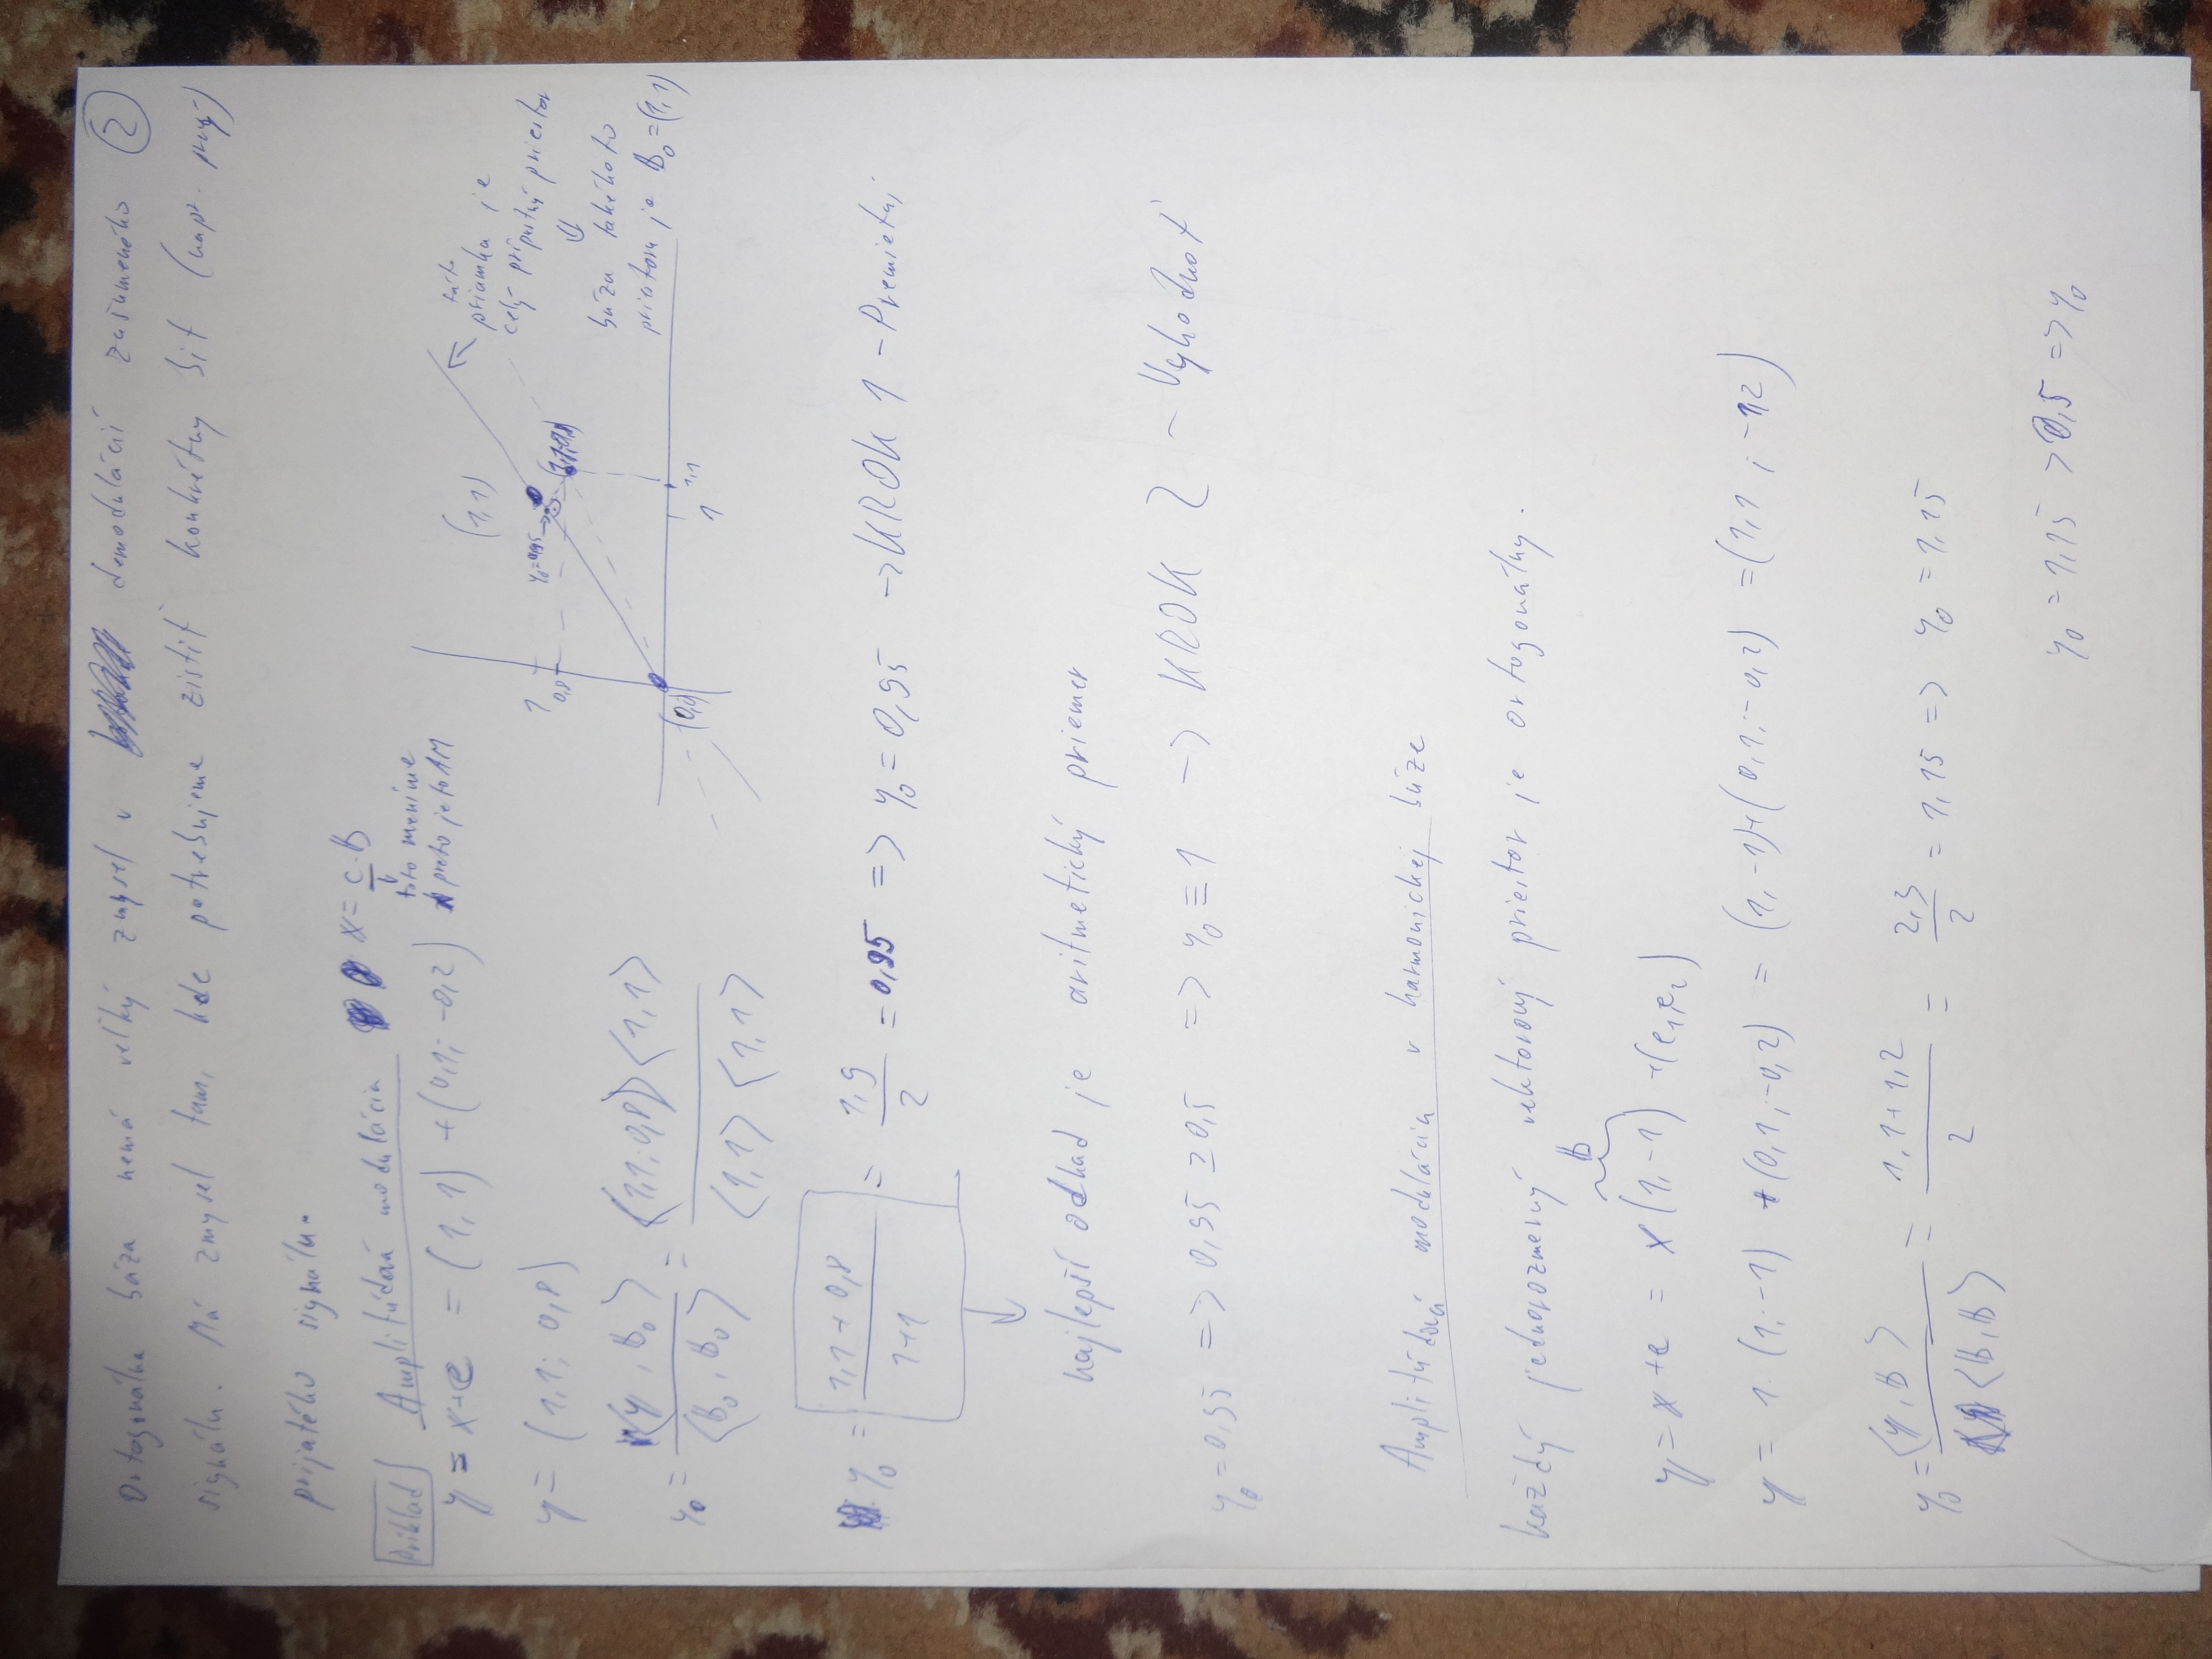 Ortogonálna báza nemá veľký zmysel v demodulácií zašumeného ②
signálu. Má zmysel tam, kde potrebujeme zistiť konkrétny bit (napr. prvý)
prijatého signálu.
Príklad Amplitúdová modulácia x = c·B
toto meníme
preto je to AM
y = x+e = (1,1) + (0,1; -0,2)
y = (1,1; 0,8)
y₀ = <y, B₀> / <B₀, B₀> = <1,1; 0,8> <1,1> / <1,1> <1,1>
(1,1)
1
0,8
y₀=0,95
(1,1;0,8)
(0,0)
1
1,1
táto
priamka je
celý prípustný priestor
⇓
báza takéhoto
priestoru je B₀=(1,1)
y₀ = 1,1+0,8 / 1+1 = 1,9 / 2 = 0,95 => y₀ = 0,95 -> KROK 1 - Premietni
najlepší odhad je aritmetický priemer
y₀ = 0,95 => 0,95 ≥ 0,5 => y₀ ≡ 1 -> KROK 2 - Vyhodnoť
Amplitúdová modulácia v harmonickej báze
Každý jednorozmerný vektorový priestor je ortogonálny.
B
y = x + e = x (1,-1) + (e₁,e₂)
y = 1. (1,-1) + (0,1;-0,2) = (1,-1)+(0,1;-0,2) = (1,1 ; -1,2)
y₀ = <y, B> / <B, B> = 1,1+1,2 / 2 = 2,3 / 2 = 1,15 => y₀ = 1,15
y₀ = 1,15 > 0,5 => y₀